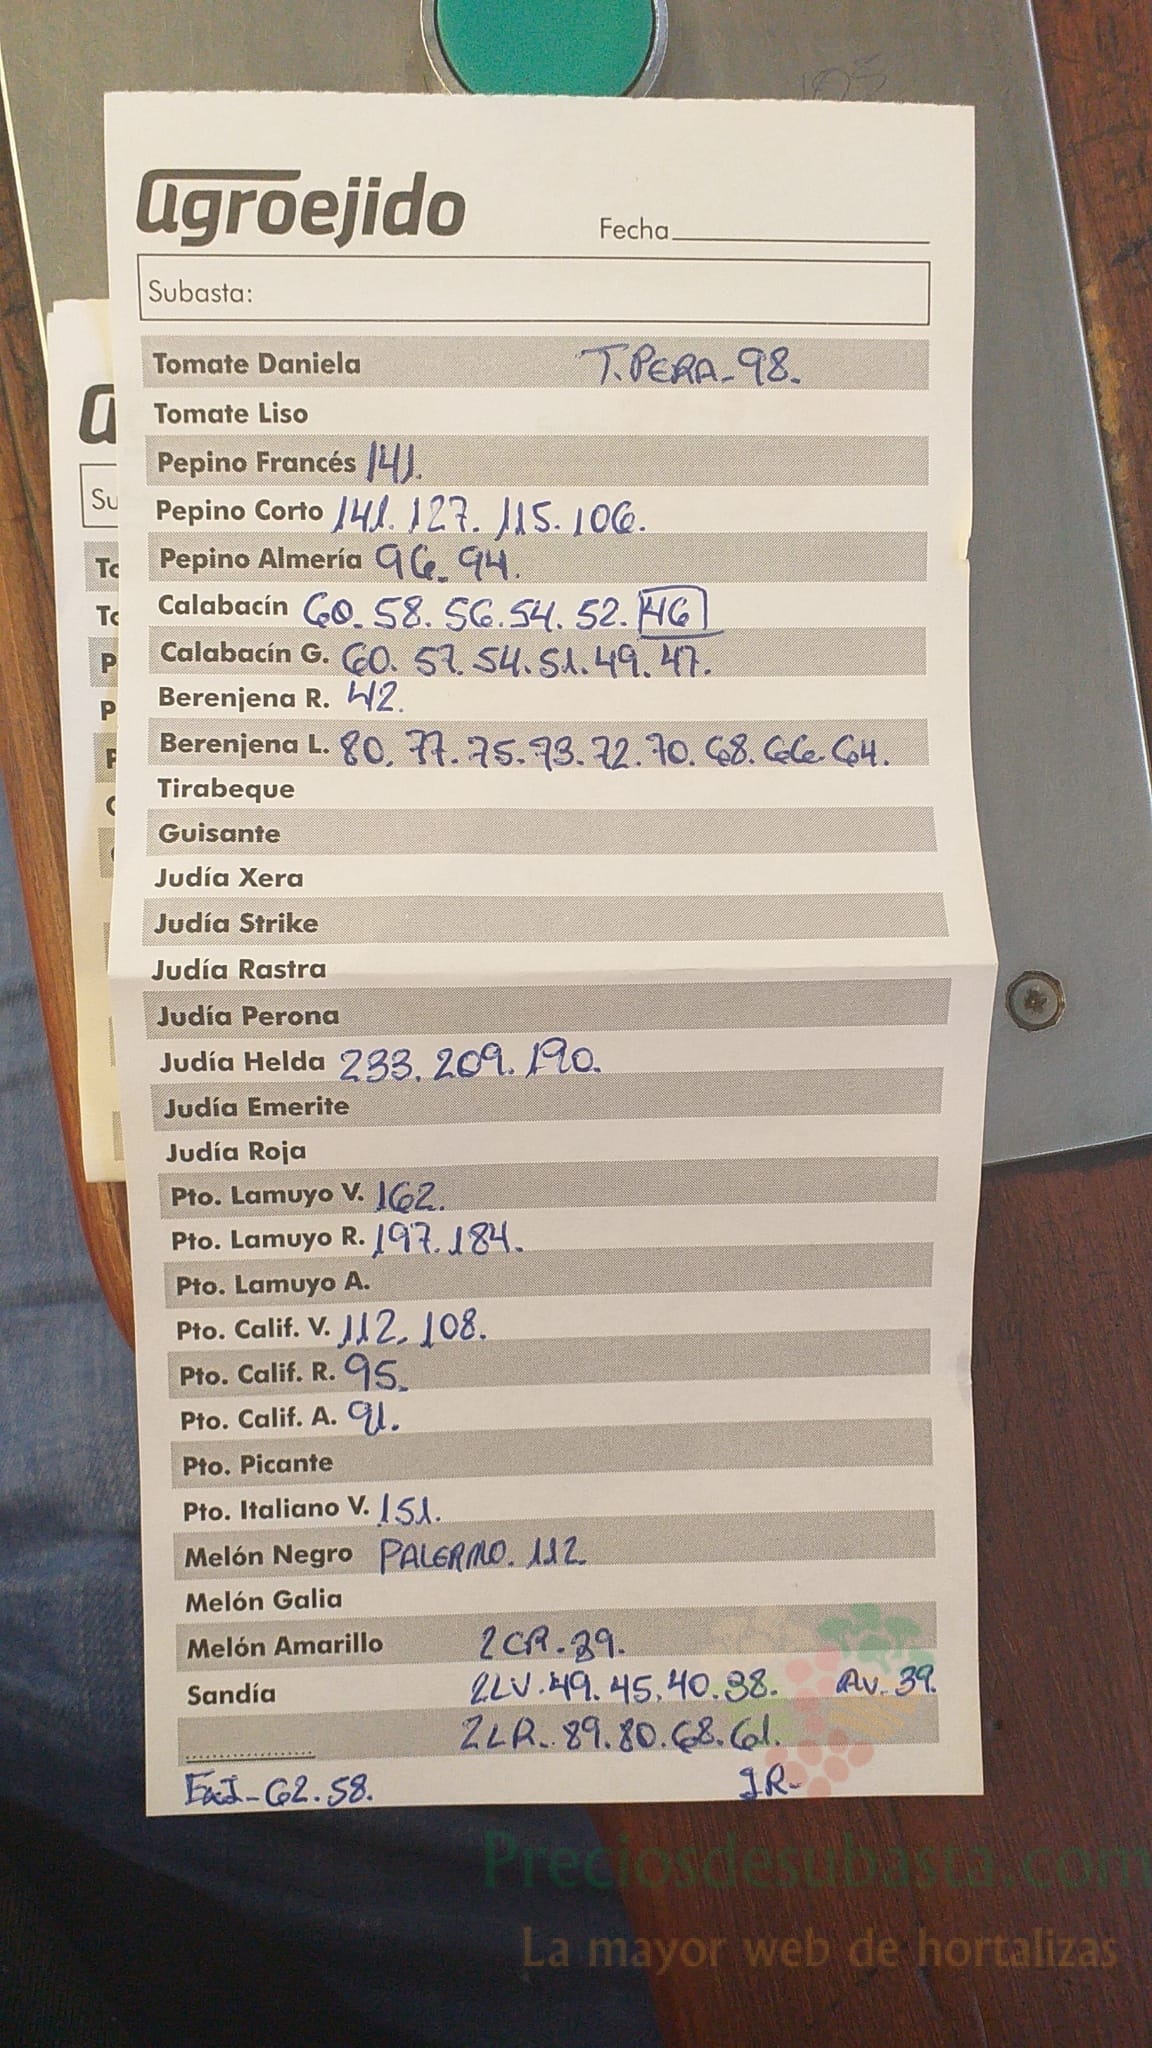 agroejido
Fecha
Subasta:
Tomate Daniela T. PERA - 98.
Tomate Liso
Pepino Francés 141.
Pepino Corto 141. 127. 115. 106.
Pepino Almería 96. 94.
Calabacín 60. 58. 56. 54. 52. 46
Calabacín G. 60. 57. 54. 51. 49. 47.
Berenjena R. 42.
Berenjena L. 80. 77. 75. 73. 72. 70. 68. 66. 64.
Tirabeque
Guisante
Judía Xera
Judía Strike
Judía Rastra
Judía Perona
Judía Helda 233. 209. 190.
Judía Emerite
Judía Roja
Pto. Lamuyo V. 162.
Pto. Lamuyo R. 197. 184.
Pto. Lamuyo A.
Pto. Calif. V. 112. 108.
Pto. Calif. R. 95.
Pto. Calif. A. 91.
Pto. Picante
Pto. Italiano V. 151.
Melón Negro PALERMO. 112
Melón Galia
Melón Amarillo 2CR. 39.
Sandía 2LV. 49. 45. 40. 38. AV. 39.
2LR. 89. 80. 68. 61.
62. 58.
Preciosdesubasta.com
La mayor web de hortalizas